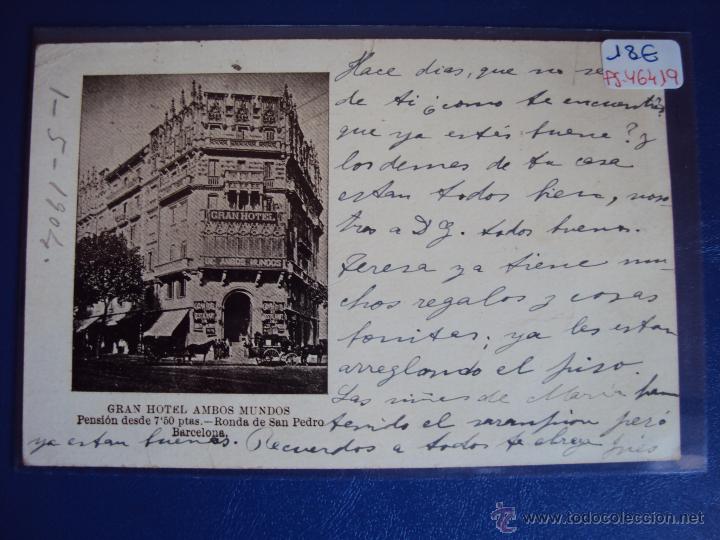 18€
PJ-46419
Hace dias, que no se
de ti ¿como te encuentras?
que ya estés buena? y
los demes de tu casa
estan todos biera, noso
tros a D. G. todos buenos.
Teresa ya tiene mu
chos regalos y cosas
bonitas; ya les estan
arreglando el piso.
Las niñas de Maria han
tenido el sarampion pero
ya estan buenas. Recuerdos a todos te abraza Inés
1-5-1902.
GRAN HOTEL
DE AMBOS MUNDOS
GRAN HOTEL AMBOS MUNDOS
Pensión desde 7'50 ptas.—Ronda de San Pedro
Barcelona.
© www.todocoleccion.net